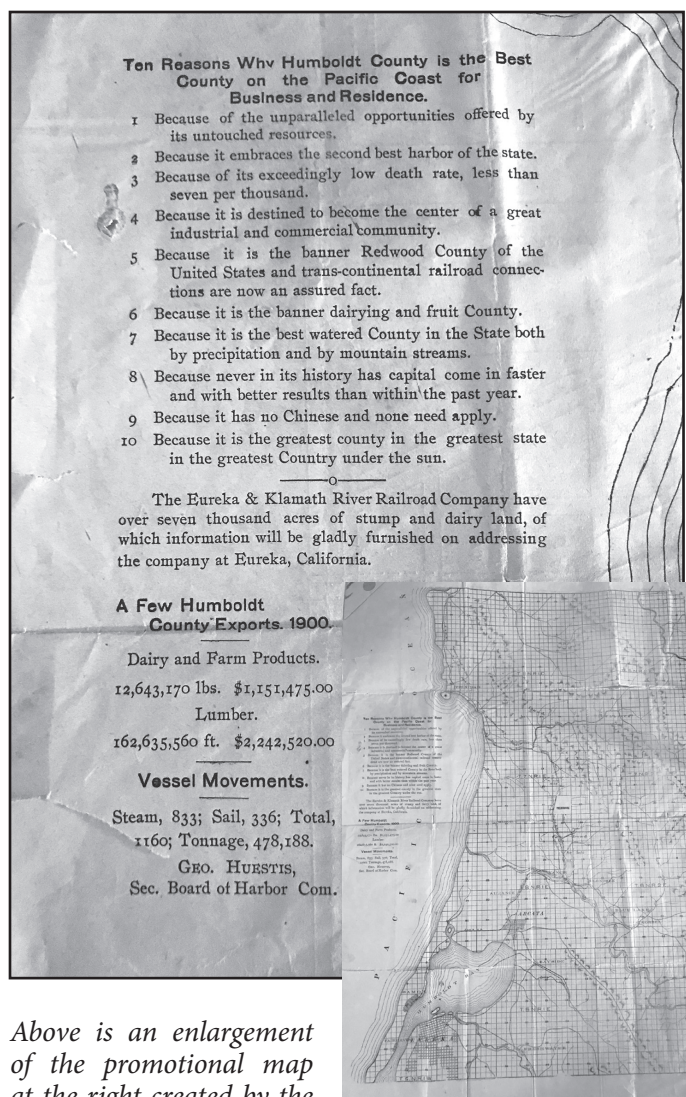 Ten Reasons Why Humboldt County is the Best
County on the Pacific Coast for
Business and Residence.
1 Because of the unparalleled opportunities offered by
its untouched resources.
2 Because it embraces the second best harbor of the state.
3 Because of its exceedingly low death rate, less than
seven per thousand.
4 Because it is destined to become the center of a great
industrial and commercial community.
5 Because it is the banner Redwood County of the
United States and trans-continental railroad connec-
tions are now an assured fact.
6 Because it is the banner dairying and fruit County.
7 Because it is the best watered County in the State both
by precipitation and by mountain streams.
8 Because never in its history has capital come in faster
and with better results than within the past year.
9 Because it has no Chinese and none need apply.
10 Because it is the greatest county in the greatest state
in the greatest Country under the sun.
The Eureka & Klamath River Railroad Company have
over seven thousand acres of stump and dairy land, of
which information will be gladly furnished on addressing
the company at Eureka, California.
A Few Humboldt
County Exports. 1900.
Dairy and Farm Products.
12,643,170 lbs. $1,151,475.00
Lumber.
162,635,560 ft. $2,242,520.00
Vessel Movements.
Steam, 833; Sail, 336; Total,
1160; Tonnage, 478,188.
GEO. HUESTIS,
Sec. Board of Harbor Com.
ARCATA
Above is an enlargement
of the promotional map
at the right created by the